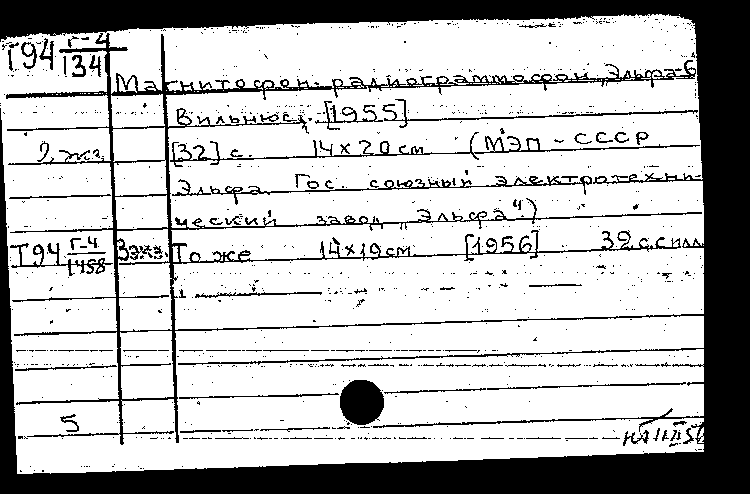 Т94 Г-4/134
Магнитофон-радиограммофон „Эльфа-6
Вильнюс, [1955]
2 экз. [32] с. 14х20 см (МЭП - СССР
Эльфа. Гос. союзный электротехни-
ческий завод „Эльфа")
Т94 Г-4/1458 3 экз. То же 14х19 см. [1956] 32 с. с илл.
5